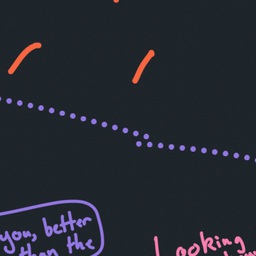 you, better
than the
Looking